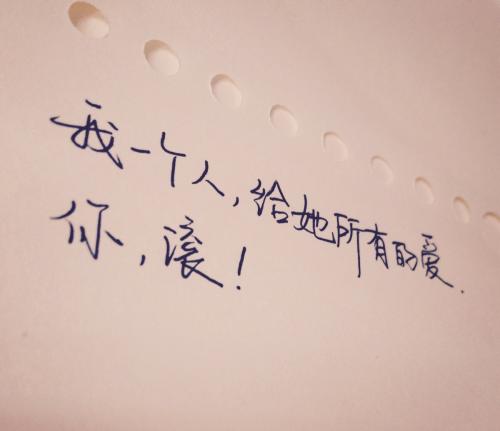 我一个人,给她所有的爱.
你,滚!